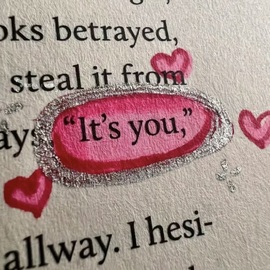 oks betrayed,
steal it from
ays “It’s you,”
allway. I hesi-